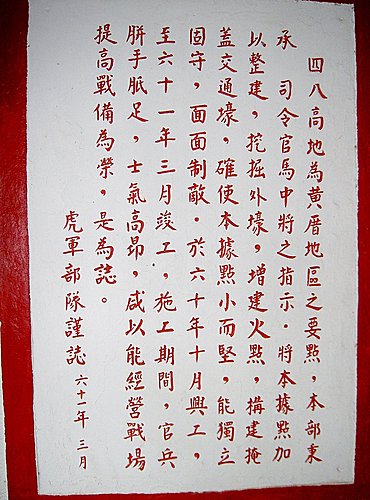 四八高地為黄厝地區之要點，本部秉
承　司令官馬中將之指示．將本據點加
以整建，挖掘外壕，增建火點，構建掩
蓋交通壕，確使本據點小而堅，能獨立
固守，面面制敵．於六十年十月興工，
至六十一年三月竣工，施工期間，官兵
胼手胝足，士氣高昂，咸以能經營戰場
提高戰備為榮，是為誌。
虎軍部隊謹誌 六十一年 三月